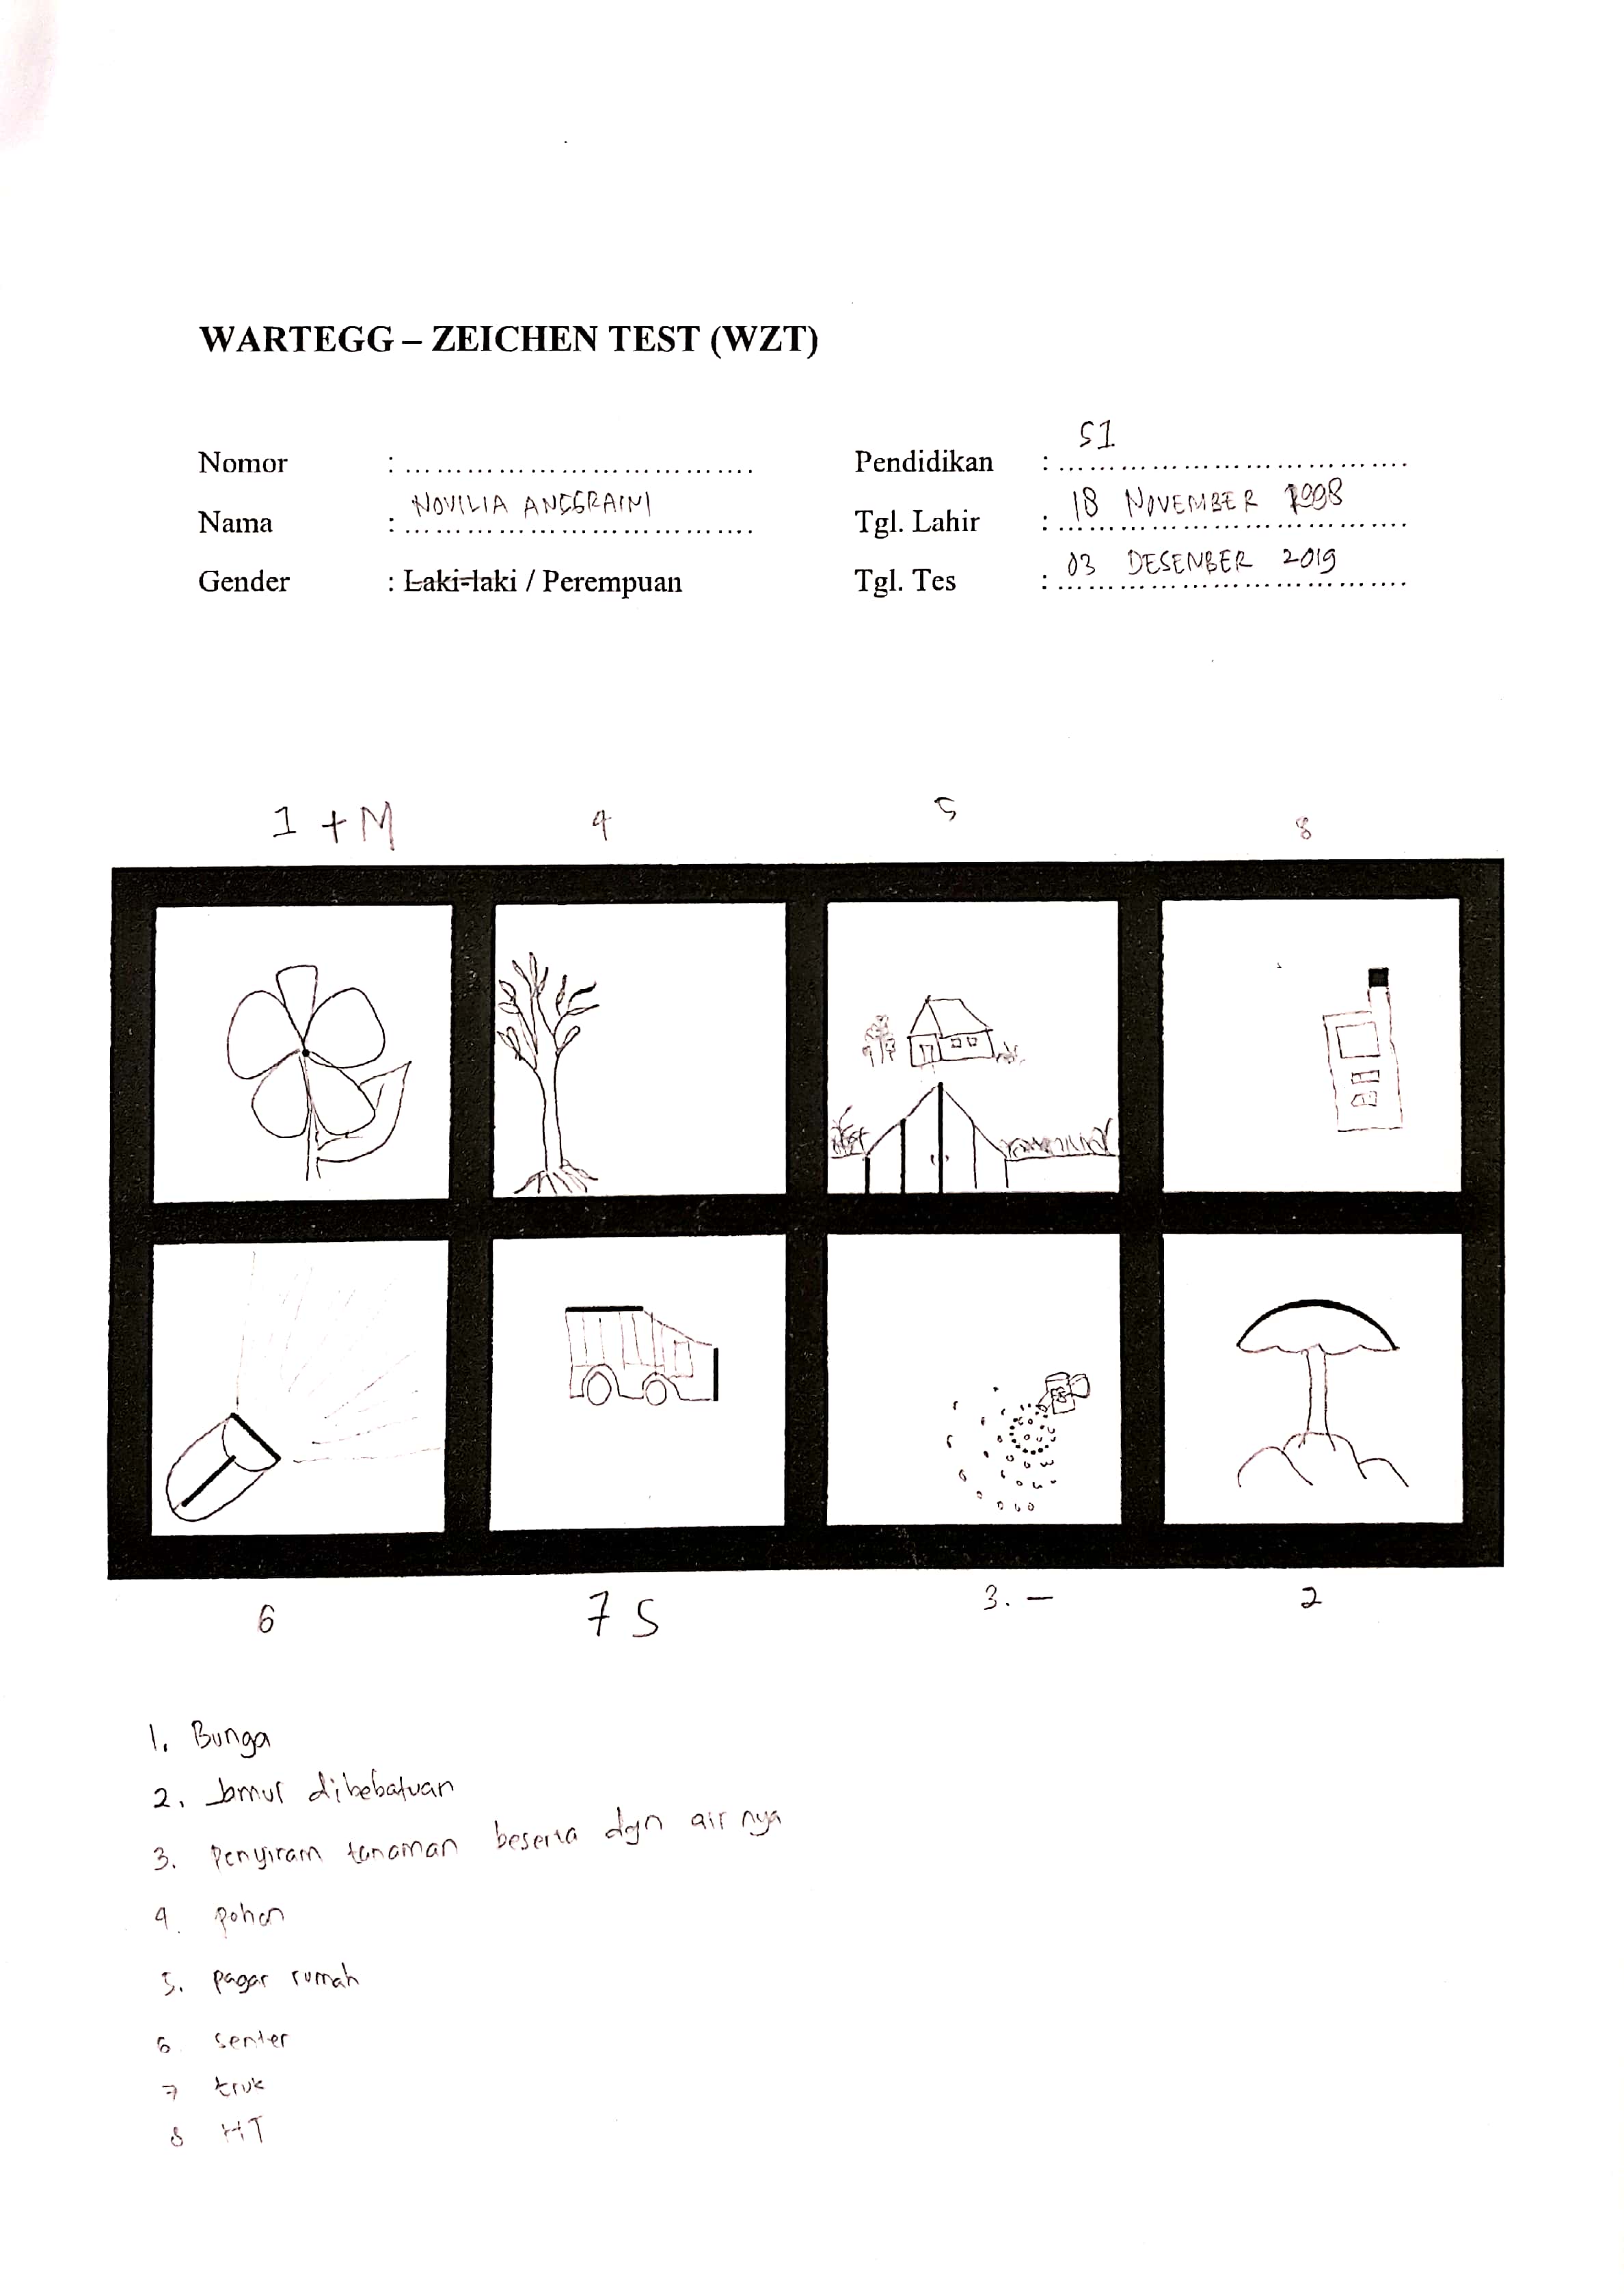 WARTEGG – ZEICHEN TEST (WZT)
Nomor : ....................................
Nama : NOVILIA ANGGRAINI
Gender : Laki-laki / Perempuan
Pendidikan : S1
Tgl. Lahir : 18 NOVEMBER 1998
Tgl. Tes : 03 DESEMBER 2019
1 + M 4 5 8
6 7 S 3. – 2
1. Bunga
2. Jamur dibebatuan
3. Penyiram tanaman beserta dgn air nya
4. pohon
5. pagar rumah
6 senter
7 truk
8 HT